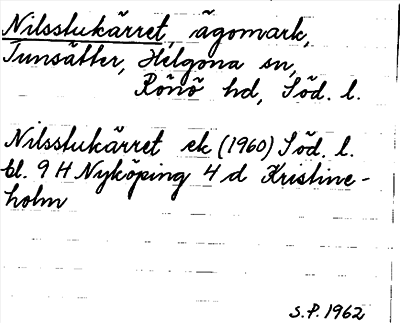 Nilsstukärret, ägomark,
Tunsätter, Helgona sn,
Rönö hd, Söd. l.
Nilsstukärret ek (1960) Söd. l.
bl. 9 H Nyköping 4 d Kristine-
holm
S.P. 1962